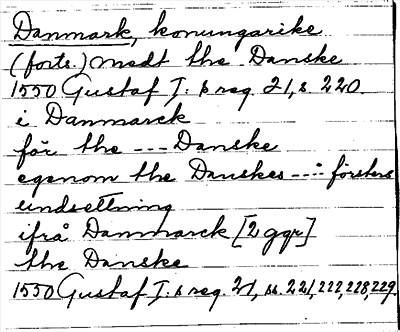 Danmark, konungarike
(forts.) medt the Danske
1550 Gustaf I:s reg. 21, s. 220.
i Danmarck
för the --- Danske
egenom the Danskes ---:
undsettning
ifrå Danmarck [2 ggr]
the Danske
1550 Gustaf I:s reg. 21, ss. 221, 222, 228, 229.